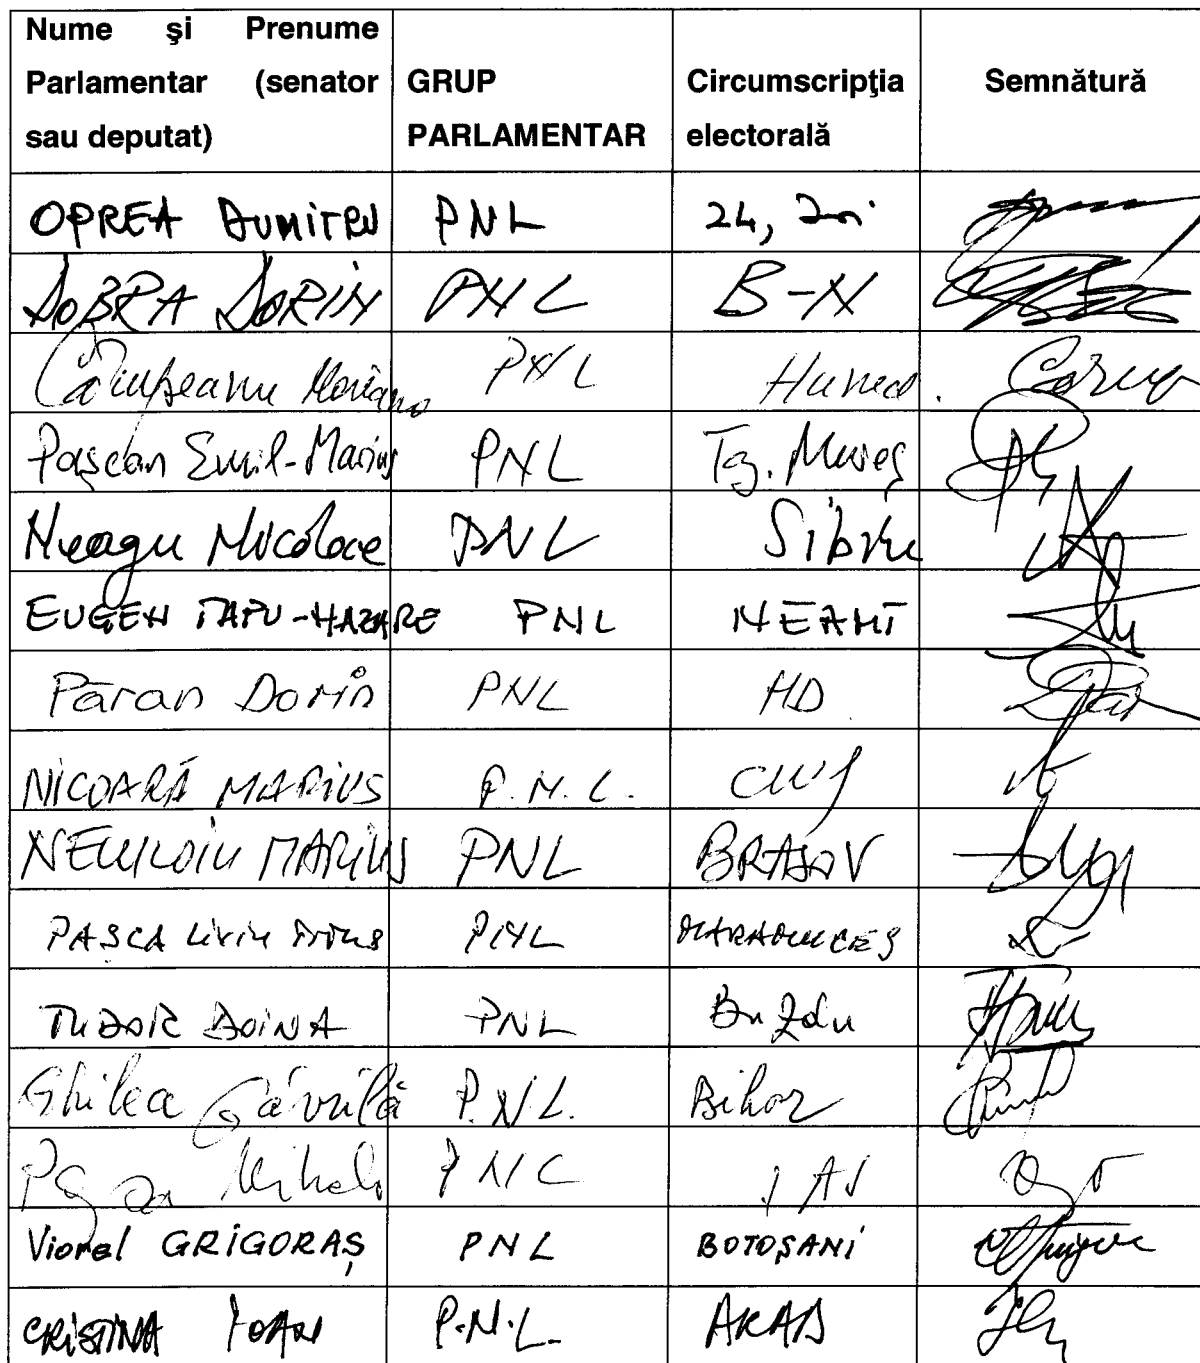 Nume și Prenume
Parlamentar (senator
sau deputat)
GRUP
PARLAMENTAR
Circumscripţia
electorală
Semnătură
OPREA DUMITRU PNL 24, Iași
DOBRA DORIN PNL B-N
Mariana PNL Huned.
Pașcan Emil-Marius PNL Tg. Mureș
Neagu Nicolae PNL Sibiu
EUGEN ȚAPU-NAZARE PNL NEAMȚ
Păran Dorin PNL HD
NICOARĂ MARIUS P.N.L. CLUJ
NECULOIU MARIUS PNL BRAȘOV
PAȘCA LIVIU TITUS PNL MARAMUREȘ
TUDOR DOINA PNL Buzău
Ghilea Găvrilă P.N.L. Bihor
PNL IAȘI
Viorel GRIGORAȘ PNL BOTOȘANI
CRISTINA IOAN P.N.L. ARAD